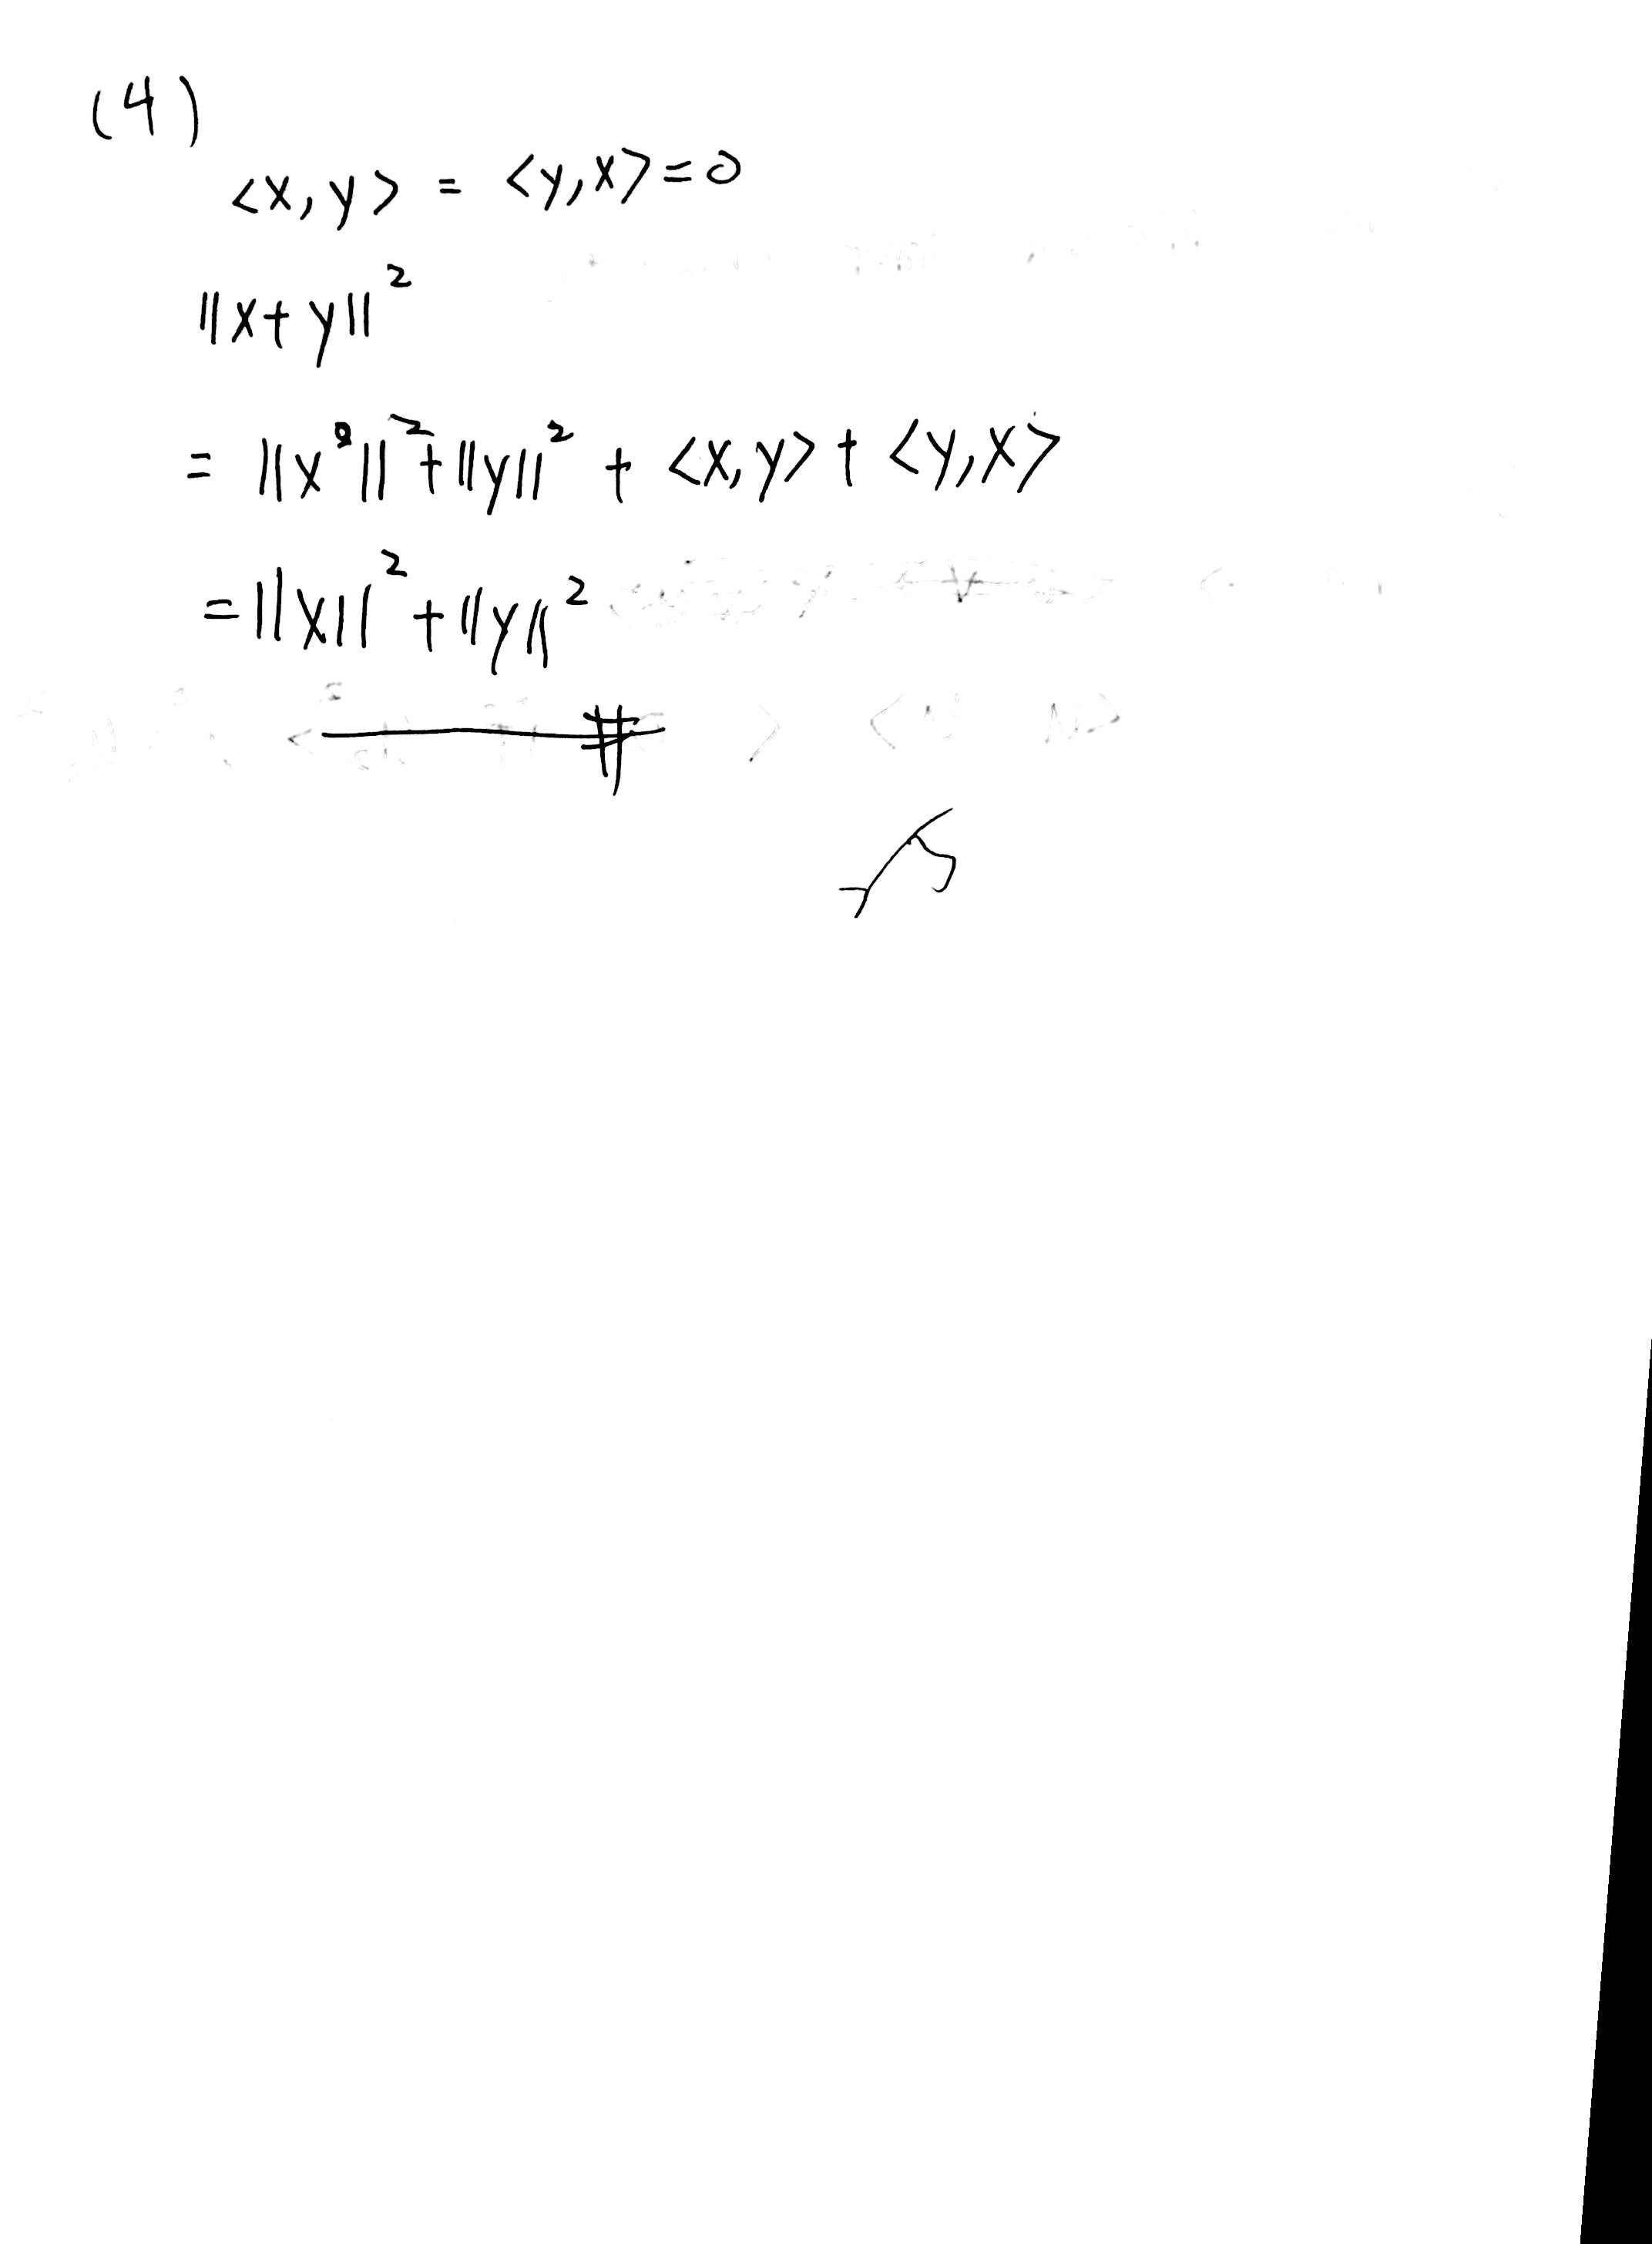 (4)
<x, y> = <y, x> = 0
||x + y||²
= ||x||² + ||y||² + <x, y> + <y, x>
= ||x||² + ||y||²
#